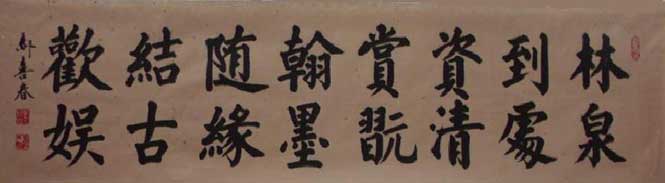 林泉
到處
資清
賞翫
翰墨
随緣
結古
歡娱
喜春